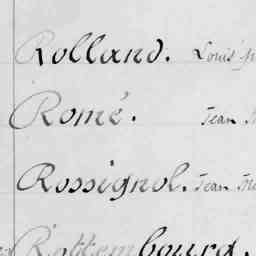 Rolland. Louis
Romé. Jean
Rossignol. Jean
Rottembourg.